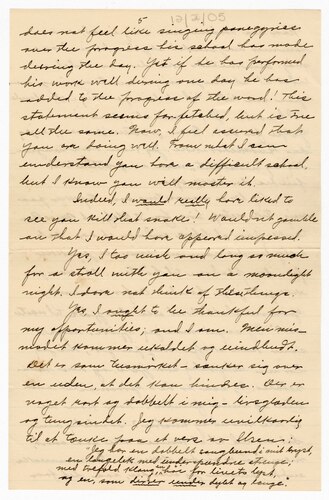 5
10/2/05
does not feel like singing panegyrics
over the progress his school has made
during the day. Yet if he has performed
his work well during one day he has
added to the progress of the word! This
statement seems far fetched, but is true
all the same. Now, I feel assured that
you are doing well. From what I can
understand you have a difficult school,
but I know you will master it.
Indeed, I would really have liked to
see you kill that snake! Wouldn't gamble
on that I would have appeared impressed.
Yes, I too wish and long so much
for a stroll with you on a moonlight
night. I dare not think of these things.
Yes I ought to be thankful for
my opportunities, and I am. Men mis-
modet kommer ukaldet og uindbudt.
Det er som Tusmörket - sænker sig over
en uden, at det kan hindres. Der er
noget rart og dobbelt i mig - livsgladen
og tungsindet. Jeg kommer uvilkårlig
til at tænke paa et vers av Ibsen:
"Jeg har en dobbelt sangbund i mit bryst,
en langelek med underspændte strenge;
med tvefold klang, høi for livets lyst,
og en, som dirrer under dybt og længe."